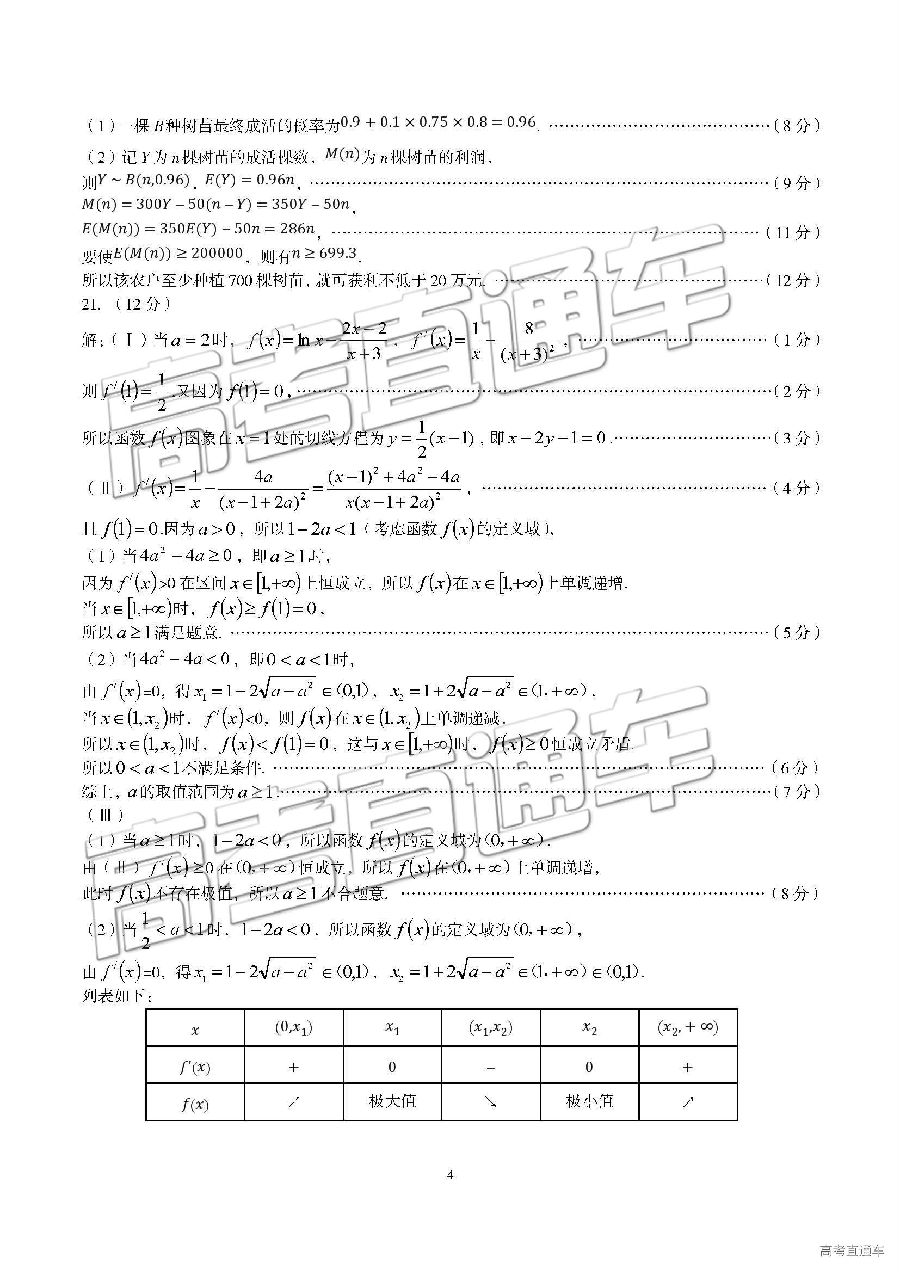 （1）一棵 B 种树苗最终成活的概率为0.9 + 0.1 × 0.75 × 0.8 = 0.96. ……………………（8 分）
（2）记 Y 为 n 棵树苗的成活棵数，M(n)为 n 棵树苗的利润，
则Y ~ B(n,0.96)，E(Y) = 0.96n，……………………（9 分）
M(n) = 300Y − 50(n − Y) = 350Y − 50n，
E(M(n)) = 350E(Y) − 50n = 286n，……………………（11 分）
要使E(M(n)) ≥ 200000，则有n ≥ 699.3.
所以该农户至少种植 700 棵树苗，就可获利不低于 20 万元. ……………………（12 分）
21.（12 分）
解：（Ⅰ）当 a = 2 时，f(x) = ln x − (2x − 2)/(x + 3)，f′(x) = 1/x − 8/(x + 3)²，……………………（1 分）
则 f′(1) = 1/2 .又因为 f(1) = 0，……………………（2 分）
所以函数 f(x) 图象在 x = 1 处的切线方程为 y = 1/2 (x − 1)，即 x − 2y − 1 = 0 .……………………（3 分）
（Ⅱ）f′(x) = 1/x − 4a/(x − 1 + 2a)² = ((x − 1)² + 4a² − 4a)/(x(x − 1 + 2a)²)，……………………（4 分）
且 f(1) = 0.因为 a > 0，所以 1 − 2a < 1（考虑函数 f(x) 的定义域），
（1）当 4a² − 4a ≥ 0，即 a ≥ 1 时，
因为 f′(x)>0 在区间 x ∈ [1,+∞) 上恒成立，所以 f(x) 在 x ∈ [1,+∞) 上单调递增.
当 x ∈ [1,+∞) 时，f(x) ≥ f(1) = 0，
所以 a ≥ 1 满足题意. ……………………（5 分）
（2）当 4a² − 4a < 0，即 0 < a < 1 时，
由 f′(x)=0，得 x₁ = 1 − 2√(a − a²) ∈ (0,1)，x₂ = 1 + 2√(a − a²) ∈ (1,+∞)，
当 x ∈ (1, x₂) 时，f′(x)<0，则 f(x) 在 x ∈ (1, x₂) 上单调递减，
所以 x ∈ (1, x₂) 时，f(x) < f(1) = 0，这与 x ∈ [1,+∞) 时，f(x) ≥ 0 恒成立矛盾.
所以 0 < a < 1 不满足条件. ……………………（6 分）
综上，a 的取值范围为 a ≥ 1.……………………（7 分）
（Ⅲ）
（1）当 a ≥ 1 时，1 − 2a < 0，所以函数 f(x) 的定义域为 (0,+∞)，
由（Ⅱ）f′(x) ≥0 在 (0,+∞) 恒成立，所以 f(x) 在 (0,+∞) 上单调递增，
此时 f(x) 不存在极值，所以 a ≥ 1 不合题意. ……………………（8 分）
（2）当 1/2 < a < 1 时，1 − 2a < 0，所以函数 f(x) 的定义域为 (0,+∞)，
由 f′(x)=0，得 x₁ = 1 − 2√(a − a²) ∈ (0,1)，x₂ = 1 + 2√(a − a²) ∈ (1,+∞) ∈ (0,1).
列表如下：
x (0,x₁) x₁ (x₁,x₂) x₂ (x₂,+∞)
f′(x) + 0 − 0 +
f(x) ↗ 极大值 ↘ 极小值 ↗
4
高考直通车
高考直通车
高考直通车